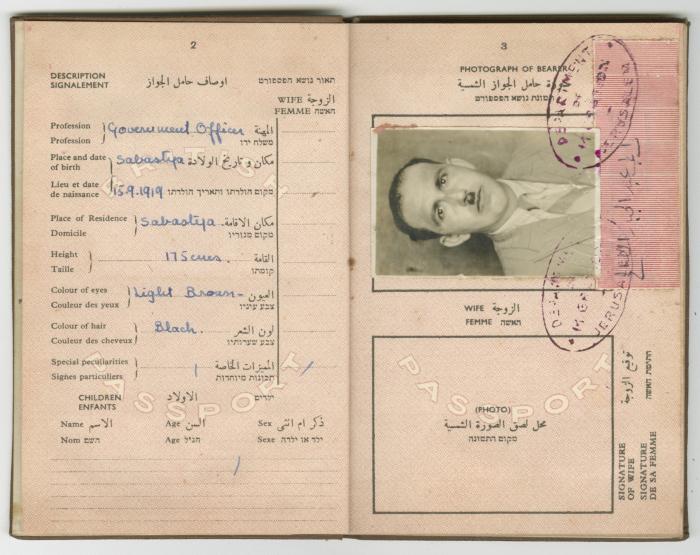 2
DESCRIPTION
SIGNALEMENT
اوصاف حامل الجواز
תאור נושא הפספורט
WIFE الزوجة
FEMME האשה
Profession
Profession
Government Officer
المهنة
משלח ידו
Place and date
of birth
Sabastya
مكان وتاريخ الولادة
Lieu et date
de naissance
15.9.1919
מקום הולדתו ותאריך הולדתו
Place of Residence
Domicile
Sabastya
مكان الاقامة
מקום מגוריו
Height
Taille
175 cms.
القامة
קומתו
Colour of eyes
Couleur des yeux
Light Brown
العيون
צבע עיניו
Colour of hair
Couleur des cheveux
Black.
لون الشعر
צבע שערותיו
Special peculiarities
Signes particuliers
المميزات الخاصة
תכונות מיוחדות
CHILDREN
ENFANTS
الاولاد
ילדים
Name الاسم Age السن Sex ذكر ام انثى
Nom השם Age הגיל Sexe ילד או ילדה
BRITISH
PASSPORT
3
PHOTOGRAPH OF BEARER
صورة حامل الجواز الشمسية
תמונת נושא הפספורט
DEPARTMENT OF MIGRATION
JERUSALEM
JERUSALEM
WIFE الزوجة
FEMME האשה
PASSPORT
(PHOTO)
محل لصق الصورة الشمسية
מקום התמונה
توقيع الزوجة
חתימת האשה
SIGNATURE
OF WIFE
SIGNATURE
DE SA FEMME